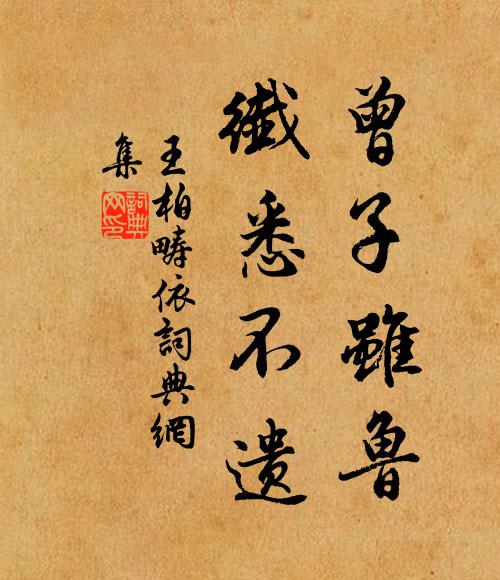 曾子雖魯
纖悉不遺
王柏疇依詞典網
集
詞典網印